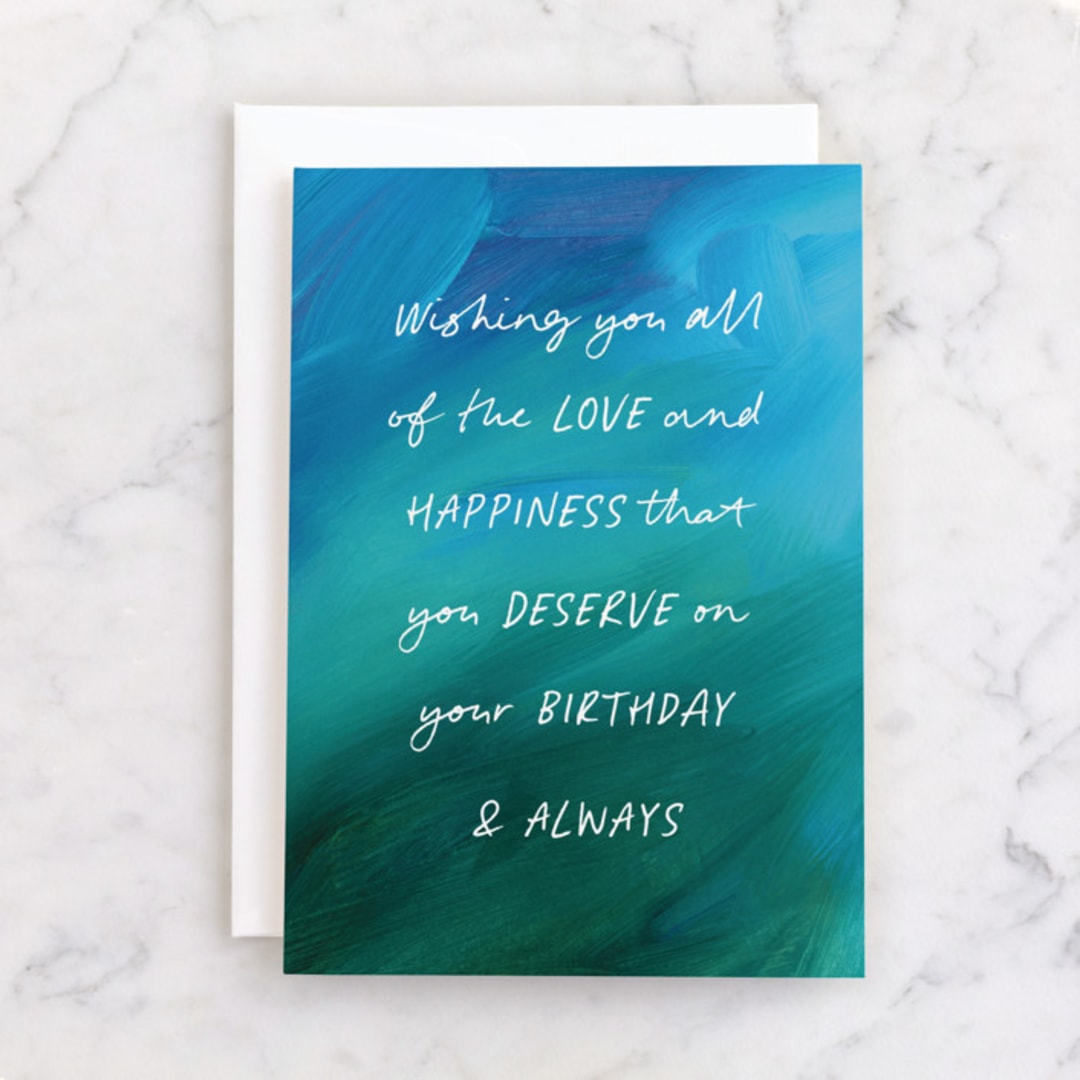 Wishing you all
of the LOVE and
HAPPINESS that
you DESERVE on
your BIRTHDAY
& ALWAYS